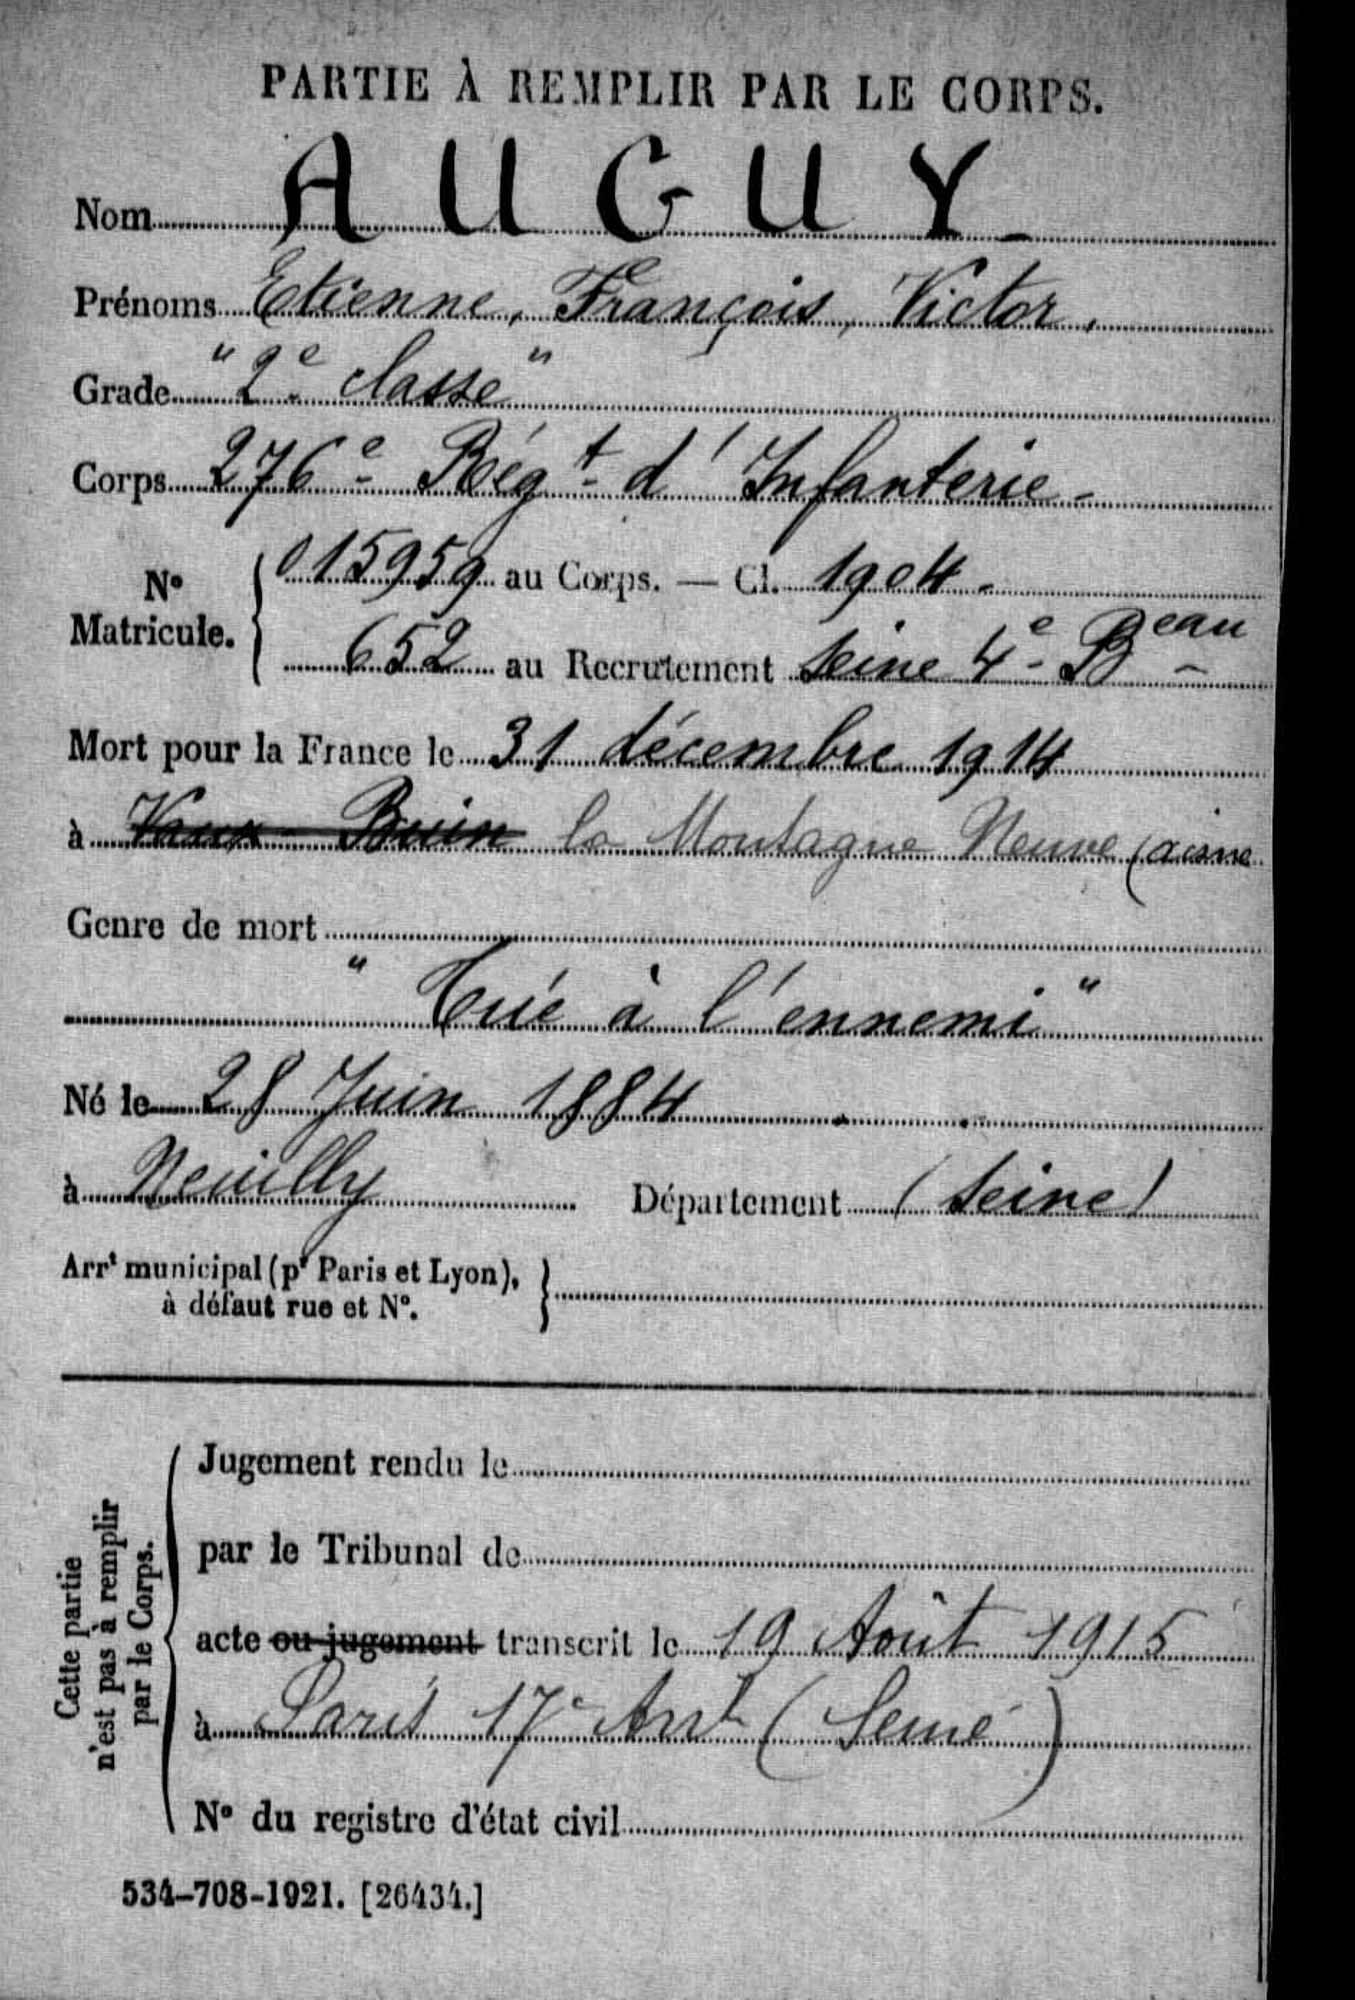 PARTIE À REMPLIR PAR LE CORPS.
Nom AUGUY
Prénoms Etienne, François, Victor,
Grade "2e classe"
Corps 276e Régt d'Infanterie
No Matricule. 015959 au Corps. — Cl. 1904.
652 au Recrutement Seine 4e Beau
Mort pour la France le 31 décembre 1914
à Vaux-Buin la Montagne Neuve (aisne
Genre de mort
"Tué à l'ennemi"
Né le 28 Juin 1884
à Neuilly Département (Seine)
Arrt municipal (pr Paris et Lyon),
à défaut rue et No.
Cette partie
n'est pas à remplir
par le Corps.
Jugement rendu le
par le Tribunal de
acte ou jugement transcrit le 19 Août 1915
à Paris 17e Arrt (Seine)
No du registre d'état civil
534-708-1921. [26434.]